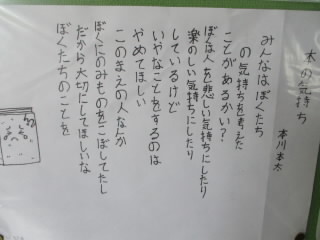 本の気持ち
本川本太
みんなはぼくたち
の気持ちを考えた
ことがあるかい?
ぼくは人を悲しい気持ちにしたり
楽しい気持ちにしたり
しているけど
いやなことをするのは
やめてほしい
このまえの人なんか
ぼくにのみものをこぼしてたし
だから大切にしてほしいな
ぼくたちのことを